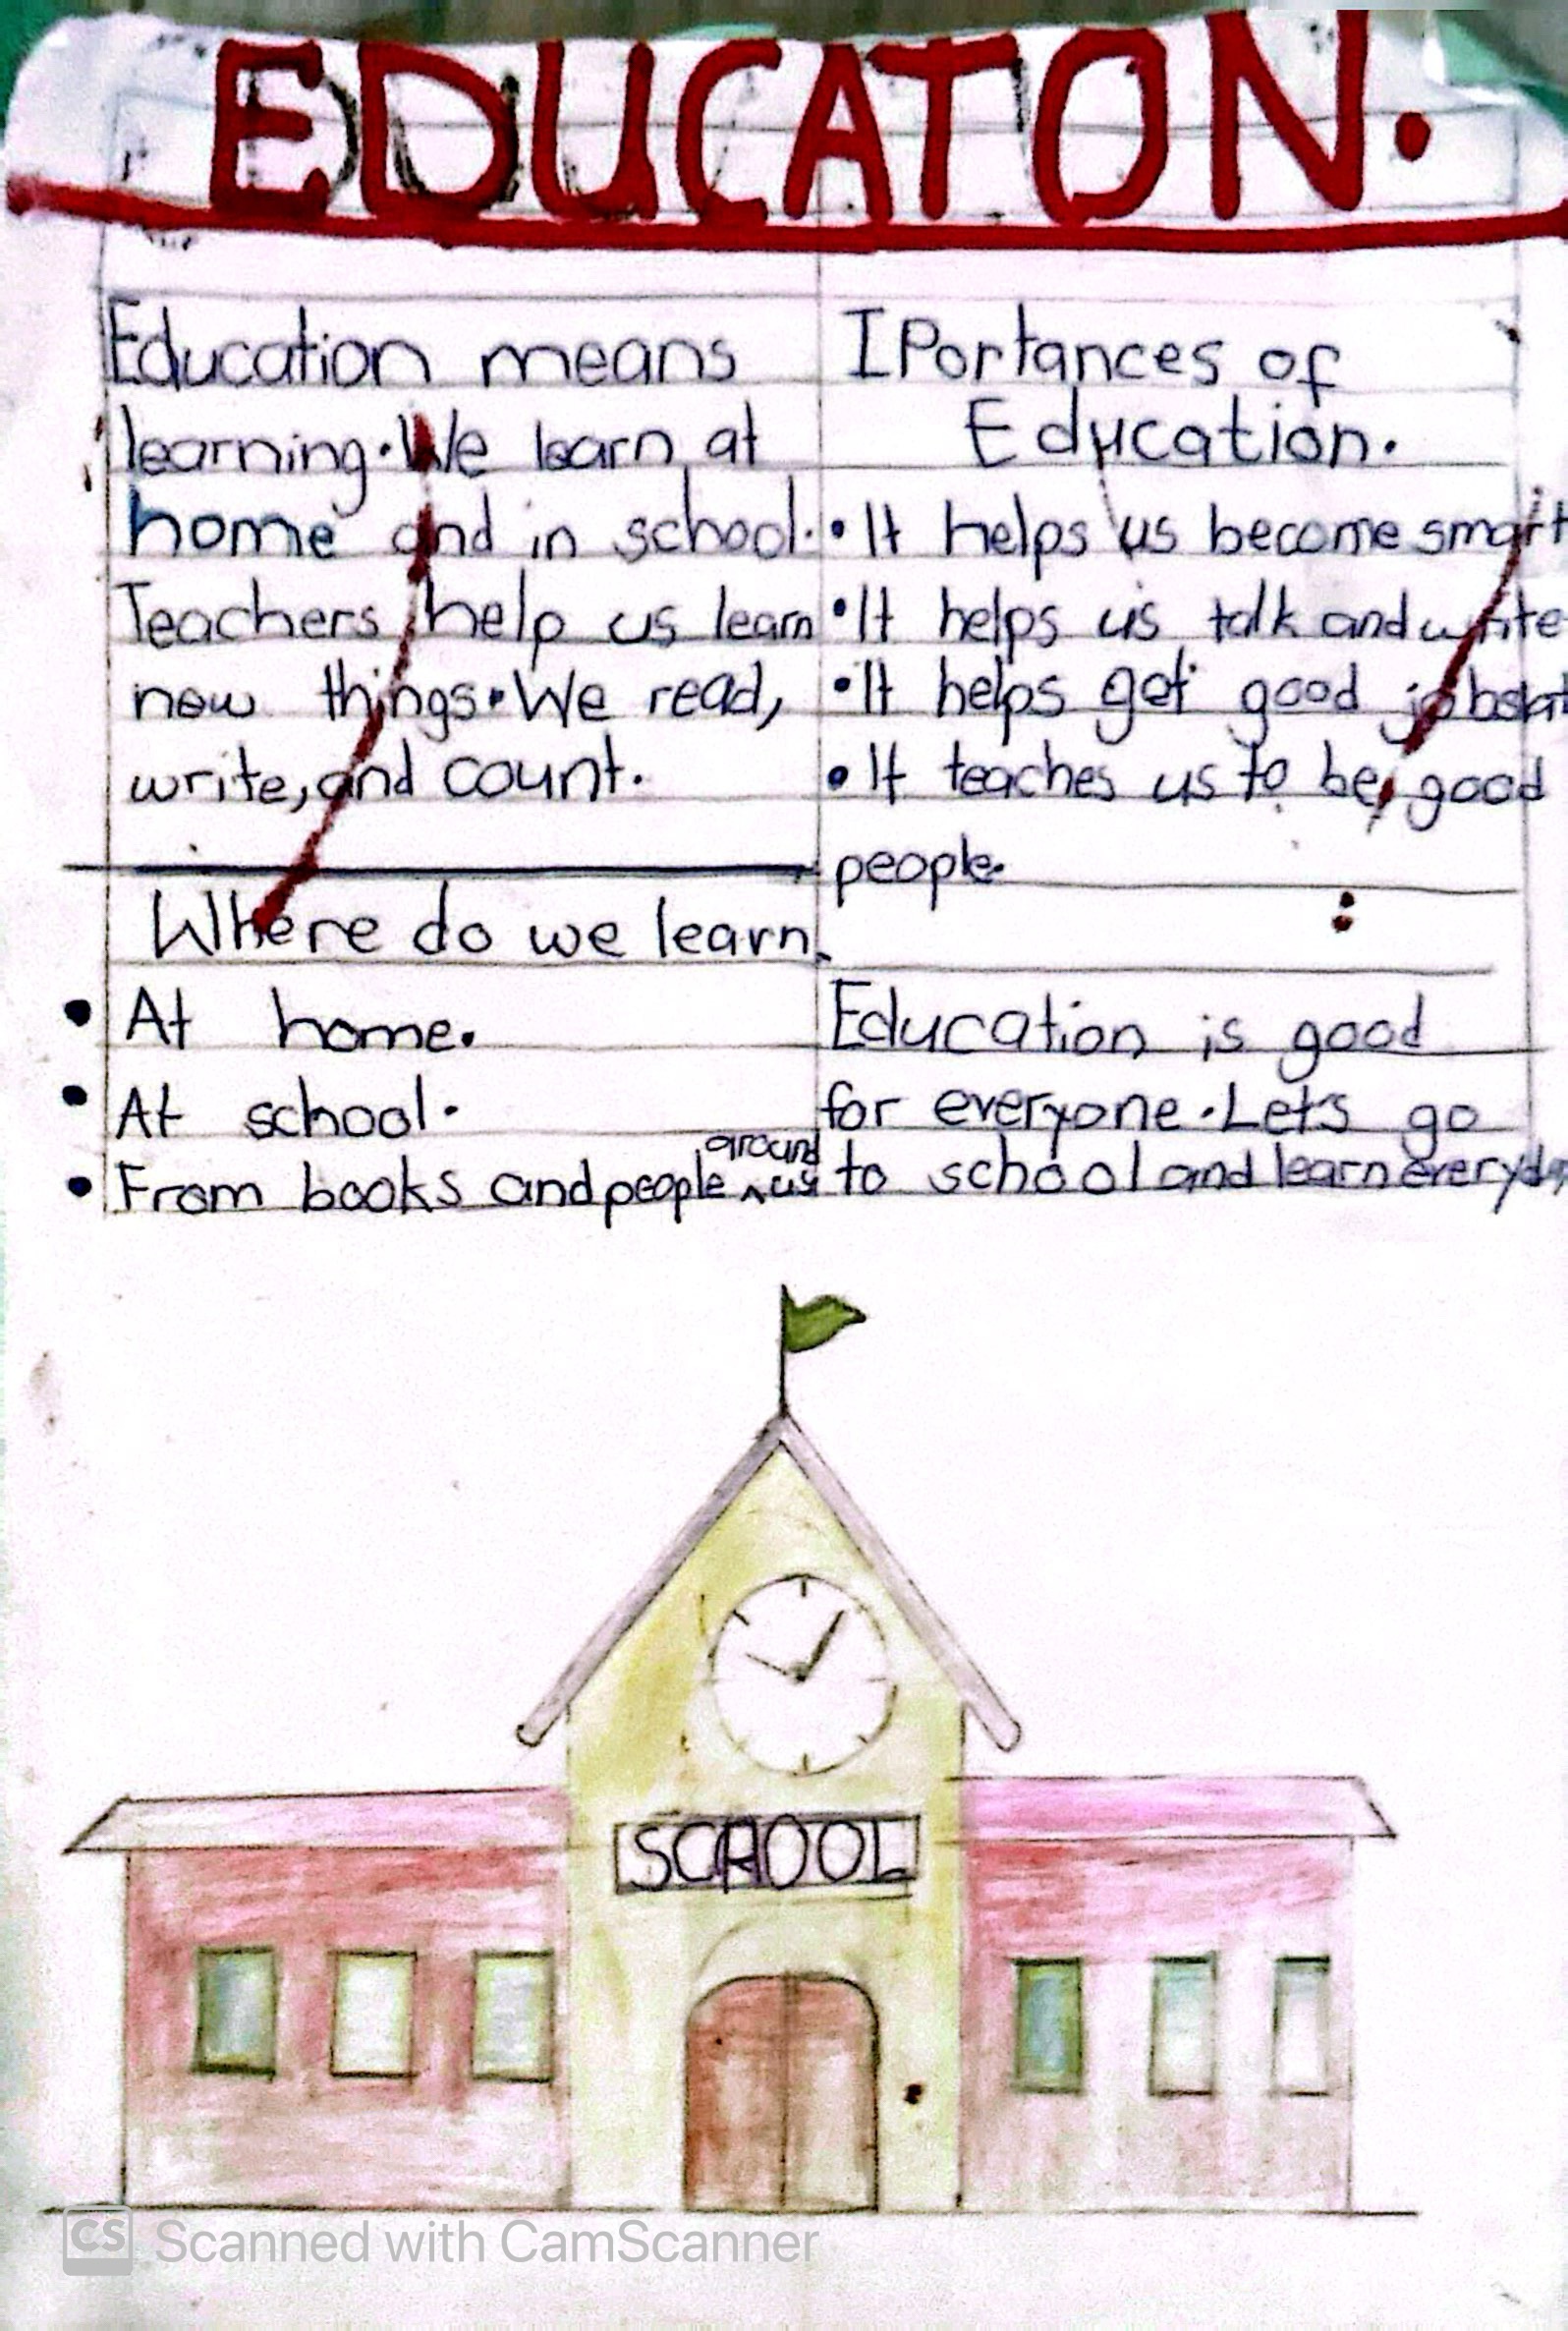 EDUCATON.
Education means
learning. We learn at
home and in school.
Teachers help us learn
new things. We read,
write, and count.
Where do we learn.
• At home.
• At school.
• From books and people around us
IPortances of
Education.
• It helps us become smart
• It helps us talk and write
• It helps get good
• It teaches us to be good
people.
Education is good
for everyone. Let's go
to school and learn everyday
SCHOOL
CS Scanned with CamScanner